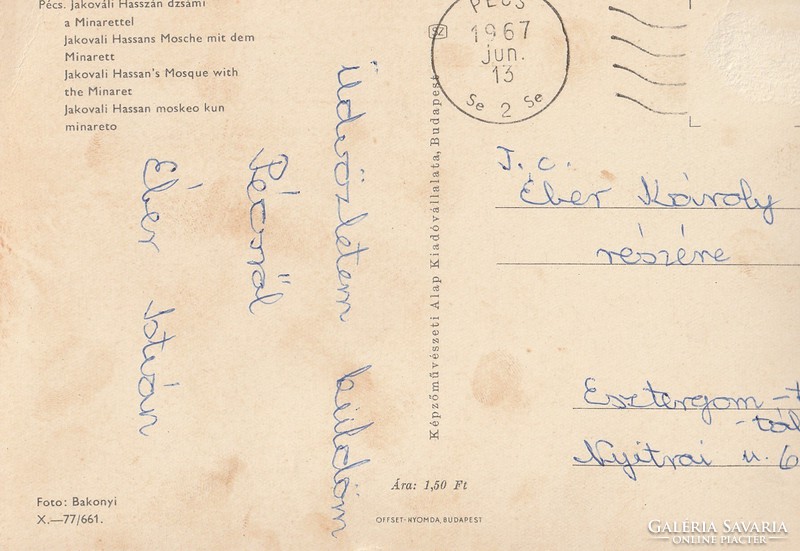 Pécs. Jakováli Hasszán dzsámi
a Minarettel
Jakovali Hassans Mosche mit dem
Minarett
Jakovali Hassan's Mosque with
the Minaret
Jakovali Hassan moskeo kun
minareto
Üdvözletem küldöm
Pécsről
Éber István
Foto: Bakonyi
X.—77/661.
SZ
Képzőművészeti Alap Kiadóvállalata, Budapest
Ára: 1,50 Ft
OFFSET-NYOMDA, BUDAPEST
PÉCS
1967
jun.
13
Se 2 Se
I. c.
Éber Károly
részére
Esztergom-t
-tál
Nyitrai u. 6
GALÉRIA SAVARIA
ONLINE PIACTÉR